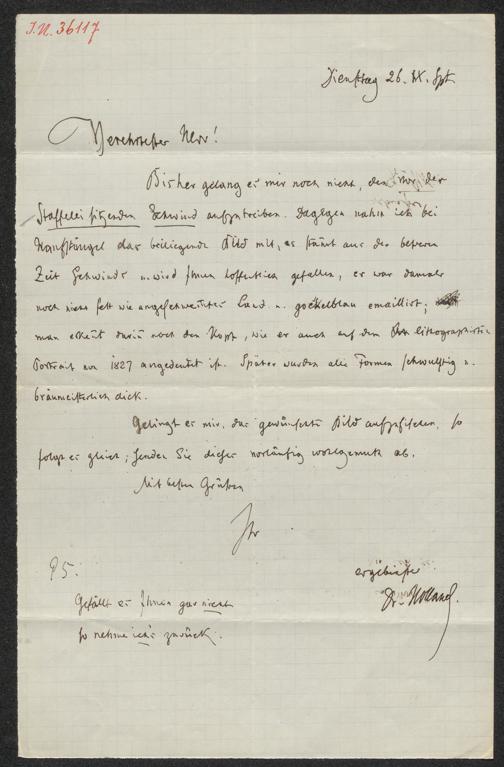 I.N. 36117
Dienstag 26. IX. Spt.
Verehrtester Herr!
Bisher gelang es mir noch nicht, den vor der
Staffelei sitzenden Schwind aufzutreiben. Dagegen nahm ich bei
Hanfstängel das beiliegende Bild mit, es stammt aus der besseren
Zeit Schwinds u. wird Ihnen hoffentlich gefallen, er war damals
noch nicht fett wie u. gockelblau emaillirt;
man erkennt darin noch den Kopf, wie er auch auf dem lithographirten
Portrait von 1827 angedeutet ist. Später wurden alle Formen schwulstig u.
bräumeisterlich dick.
Gelingt es mir, das gewünschte Bild aufzufischen, so
folgt es gleich; senden Sie dieses vorläufig wohlgemuth ab.
Mit besten Grüßen
Ihr
ergebenster
Dr. Holland.
PS.
Gefällt es Ihnen gar nicht
so nehme ich's zurück.